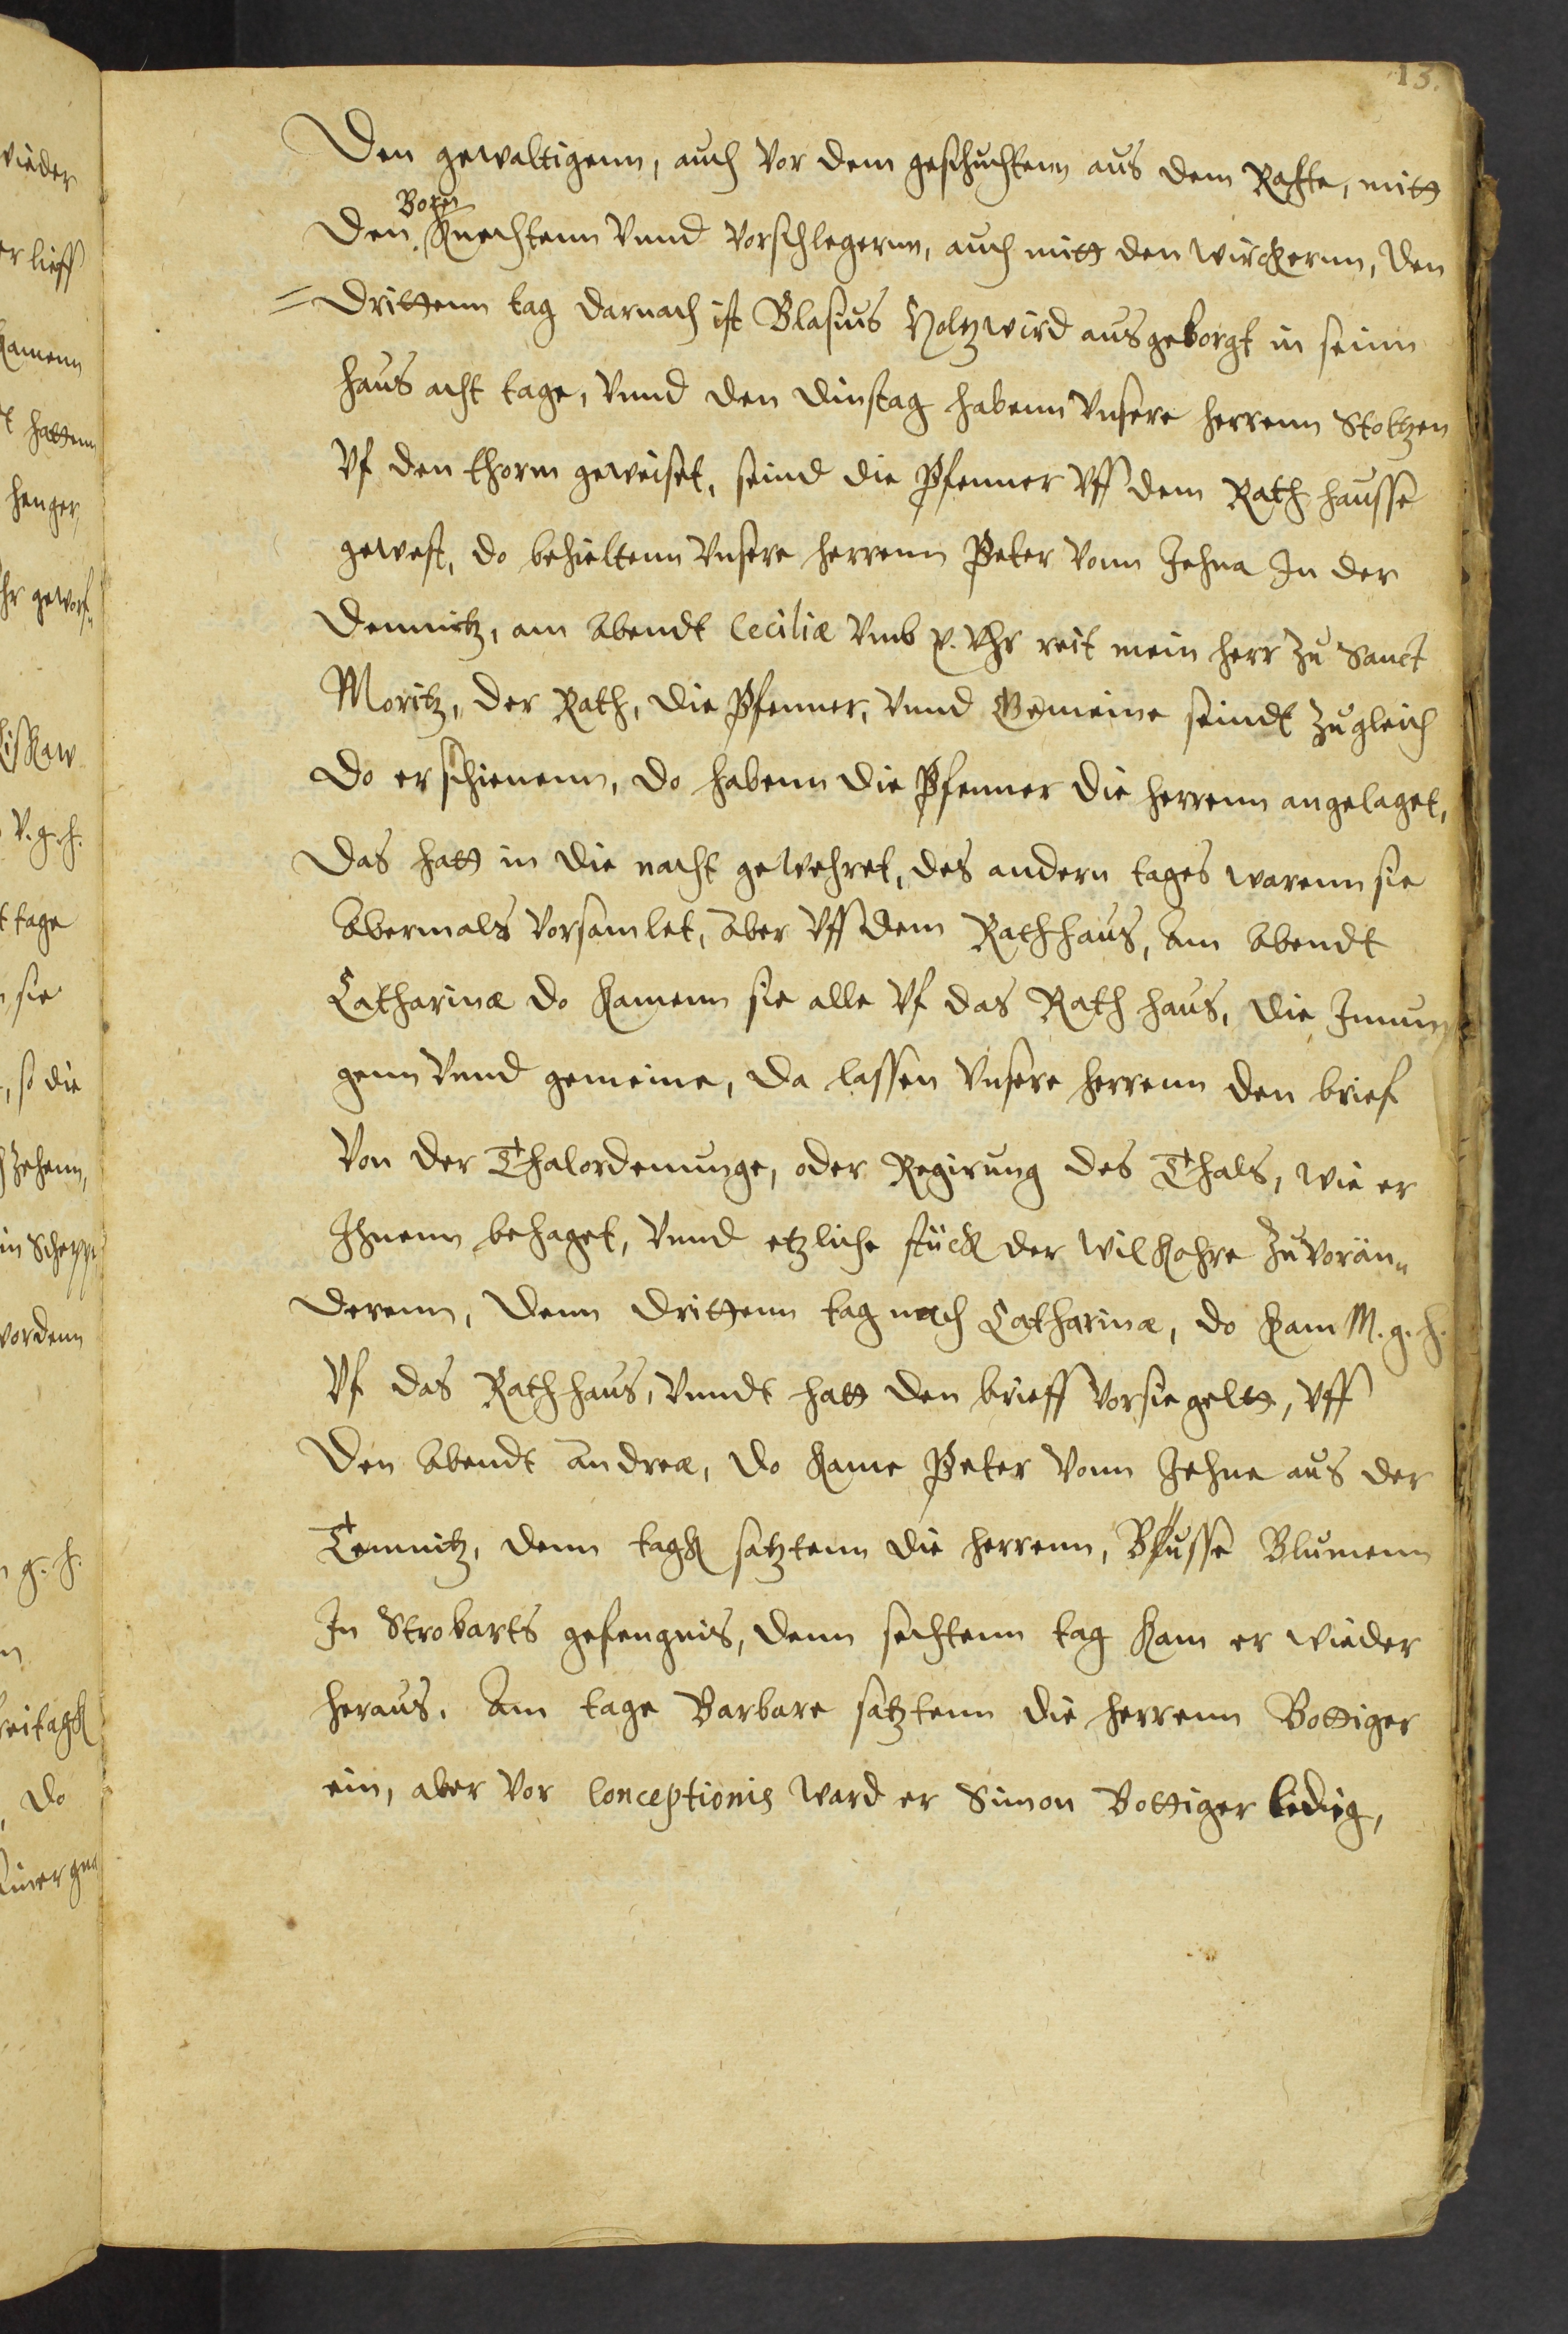 13.
Den gewaltigenn, auch vor dem geschuchtenn aus dem Rathe, mitt
Boren
den Knechtenn vnnd vorschlegernn, auch mitt den wirckernn, den
drittenn tag darnach ist Blasius Holtzwird ausgeborgt in seinn
haus acht tage, vnnd den dinstag habenn vnsere herrenn Stoltzen
vf den thorm geweiset, seind die Pfenner vff dem Rath hausse
gewest, do behieltenn vnsere herrenn Peter vonn Jehna In der
demnitz, am abendt Ceciliæ vmb v. vhr reit mein herr zu Sanct
Moritz, der Rath, die Pfenner, vnnd Gemeine seindt zugleich
do erschienenn, do habenn die Pfenner die herrenn angelaget,
das hatt in die nacht gewehret, des andern tages warenn sie
abermals vorsamlet, aber vff dem Rathhaus, am abendt
Catharinæ do kamenn sie alle vf das Rath haus, die Innun
genn vnnd gemeine, da lassen vnsere herrenn den brief
von der Thalordenunge, oder Regirung des Thals, wie er
Ihnenn behaget, vnnd etzliche stück der wilkohre zuvorän„
derenn, denn drittenn tag nach Catharinæ, do kam M. g. h.
vf das Rathhaus, vnndt hatt den brieff vorsiegeltt, vff
den abendt andreæ, do kame Peter vonn Jehne aus der
Temnitz, denn tagk satztenn die herrenn, Busse Blumenn
In Strobarts gefengnis, denn sechtenn tag kam er wieder
heraus. Am tage Barbare satztenn die herrenn Bottiger
ein, aber vor Conceptionis ward er Simon Bottiger ledig,